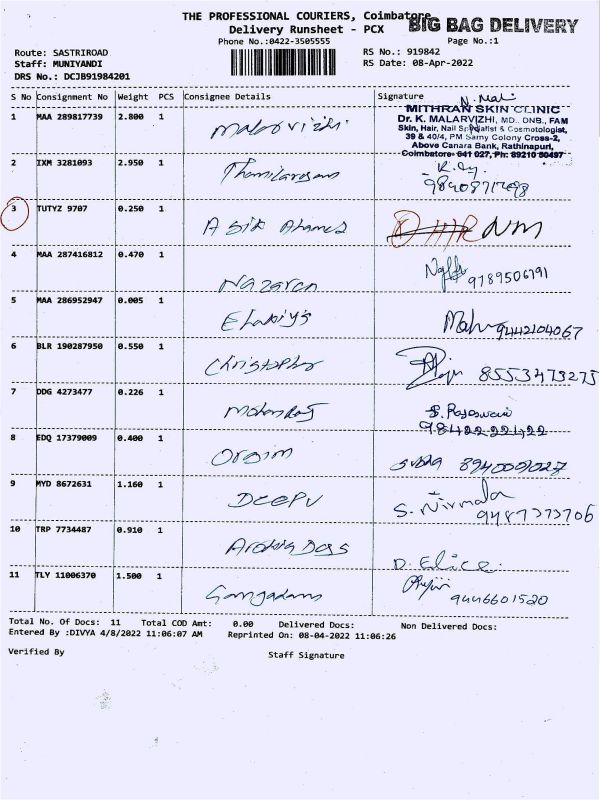 THE PROFESSIONAL COURIERS, Coimbatore
BIG BAG DELIVERY
Delivery Runsheet - PCX
Phone No.:0422-3505555
Page No.:1
Route: SASTRIROAD
Staff: MUNIYANDI
DRS No.: DCJB91984201
RS No.: 919842
RS Date: 08-Apr-2022
S No Consignment No Weight PCS Consignee Details Signature
N. Mali
MITHRAN SKIN CLINIC
Dr. K. MALARVIZHI, MD., DNB., FAM
Skin, Hair, Nail Specialist & Cosmetologist,
39 & 40/4, PM Samy Colony Cross-2,
Above Canara Bank, Rathinapuri,
Coimbatore- 641 027, Ph: 89210 50497
1 MAA 289817739 2.800 1 Malarvizhi
2 IXM 3281093 2.950 1 Thamilarasan
3 TUTYZ 9707 0.250 1 Asik Ahamed
4 MAA 287416812 0.470 1 Nazaren
9789506791
5 MAA 286952947 0.005 1
9442104067
6 BLR 190287950 0.550 1 Christopher
8553473275
7 DDG 4273477 0.226 1 Mohanraj
98422 22422
8 EDQ 17379009 0.400 1
9 MYD 8672631 1.160 1 Deepu
S. Nirmala
9487373706
10 TRP 7734487 0.910 1
11 TLY 11006370 1.500 1
9446601520
Total No. Of Docs: 11 Total COD Amt: 0.00 Delivered Docs: Non Delivered Docs:
Entered By :DIVYA 4/8/2022 11:06:07 AM Reprinted On: 08-04-2022 11:06:26
Verified By Staff Signature